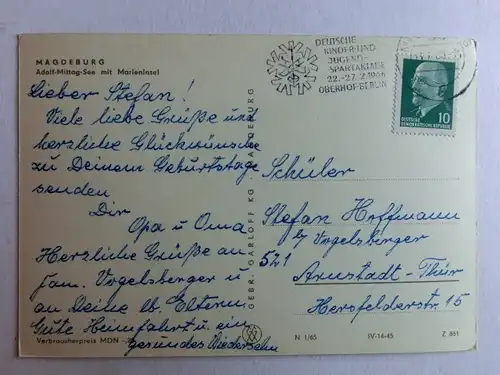 MAGDEBURG
Adolf-Mittag-See mit Marieninsel
Lieber Stefan!
Viele liebe Grüße und
herzliche Glückwünsche
zu Deinem Geburtstage
senden
Dir
Opa u Oma
Herzliche Grüße an
Fam. Vogelsberger u
an Deine lb. Eltern
Gute Heimfahrt u. ein
gesundes Wiedersehn
Verbraucherpreis MDN
GEBR. GARLOFF KG · MAGDEBURG
DEUTSCHE
KINDER-UND
JUGEND-
SPARTAKIADE
22.-27. 2. 1966
OBERHOF-BERLIN
10
DEUTSCHE
DEMOKRATISCHE REPUBLIK
Schüler
Stefan Hoffmann
b/ Vogelsberger
521
Arnstadt-Thür
Hersfelderstr. 15
N 1/65
IV-14-45
Z 661